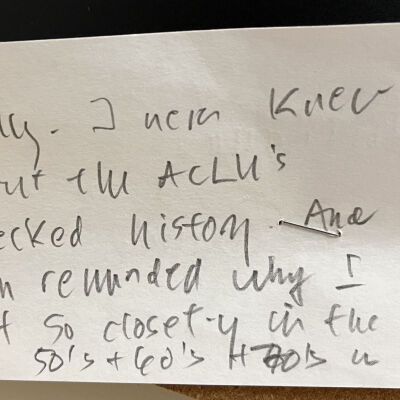 ly. I never knew
ut the ACLU's
ecked history. And
n reminded why I
t so closet-y in the
50's + 60's + 70's